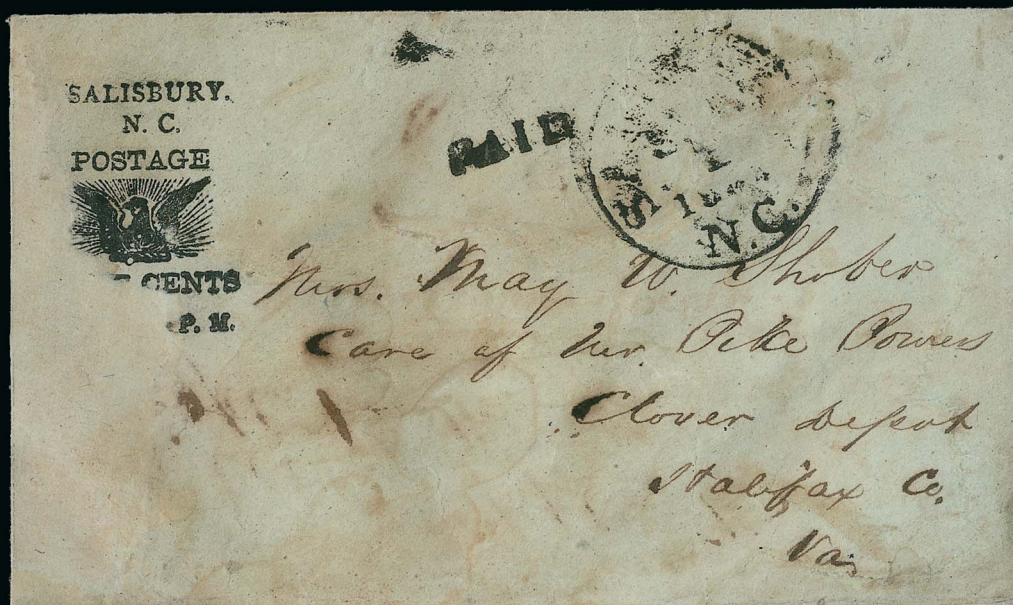 SALISBURY.
N. C.
POSTAGE
CENTS
P. M.
PAID
N.C.
Mrs. May W. Shober
Care of Mr Pike Powers
Clover Depot
Halifax Co.
Va